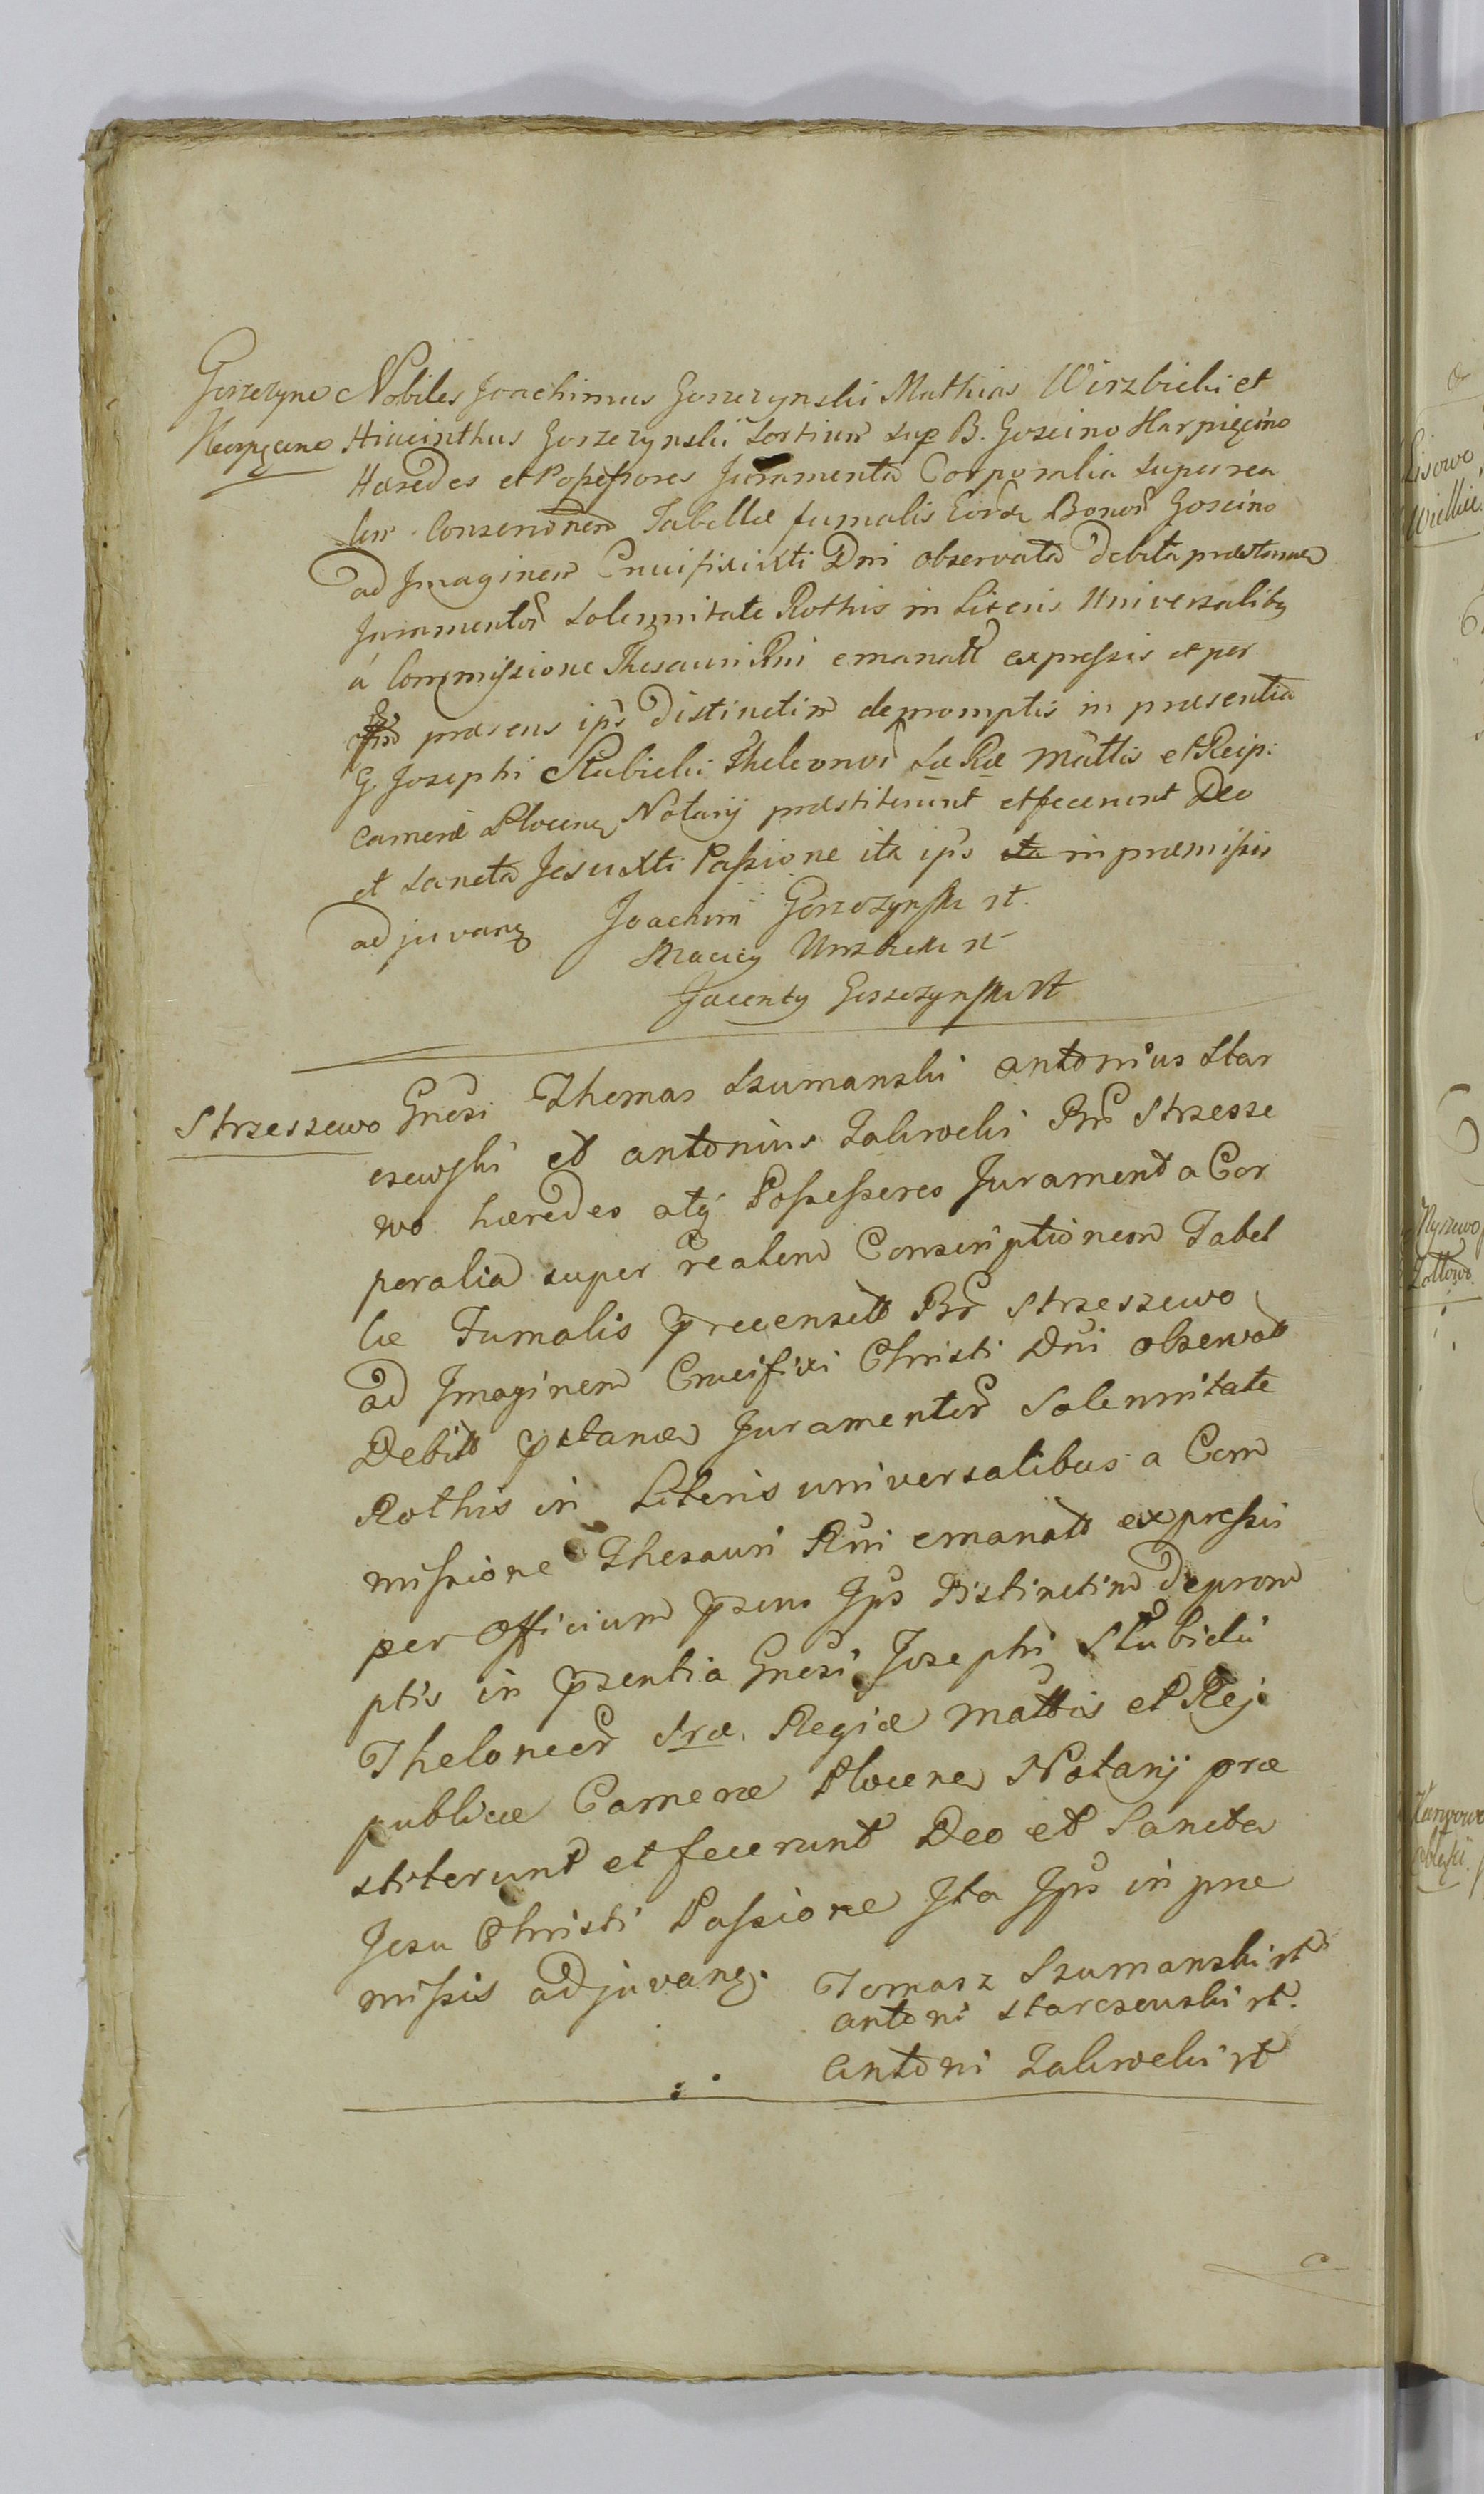 Gorzezyno Nobiles Joachimus Gorzezynski Mathias Wirzbicki et
Harpęcino Hiacinthus Gorzezynski Sortium sup B. Goscino Harpięcino
Hæredes et Possessores Juramenta Corporalia super rea
lem Conscrionem Tabellæ fumalis Eord Bonor Goscino
ad Imaginem Crucifixi Xti Dni observata debita præstannor
Juramentor Solennitate Rothis in Literis Universalibq
á Commissione Thesauri Rni emanatt expressis et per
præsens ips distinctim depromptis in præsentia
G. Josephi Skubicki Theleonor Sæ Ræ Mattis et Reip:
Cameræ Plocens Notarij præstiterunt et fecerunt Deo
et Sancta Jesu Xti Passione ita ips ita in præmissis
adjuvanq Joachim Gorzezynski rt.
Maciey Wirzbicki rt
Jacenty Gorzezynski rt
Strzeszewo Gnesi Thomas Szumanski Antonius Star
czewski et Antonius Zakrwcki Br Strzesze
wo hæredes atq Possessores Juramenta Cor
poralia super realem Conscriptionem Tabel
læ Fumalis precensitt Br Strzeszewo
ad Imaginem Crucifixi Christi Dni observatt
Debitt pstanor Juramentor Solennitate
Rothis in Literis universalibus a Com
missione Thesauri Rni emanatt expressis
per Officium psens Ips Distinctim Deprom
ptis in psentia Gnesi Josephi Skubicki
Theloneor Sræ. Regiæ Mattis et Rei
publicæ Cameræ Plocens Notarij præ
stiterunt et fecerunt Deo et Sancta
Jesu Christi Passione Ita Ips in præ
missis adjuvanq. Tomasz Szumanski rt
Antoni Starczewski rt.
Antoni Zakrwcki rt
Lisowo
Wielkie
Nyszewo
Zottowo